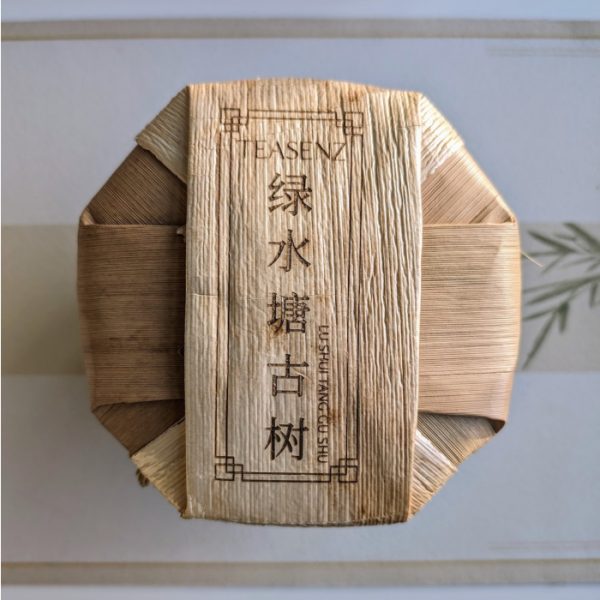 TEASENZ
绿水塘古树
LU SHUI TANG GU SHU